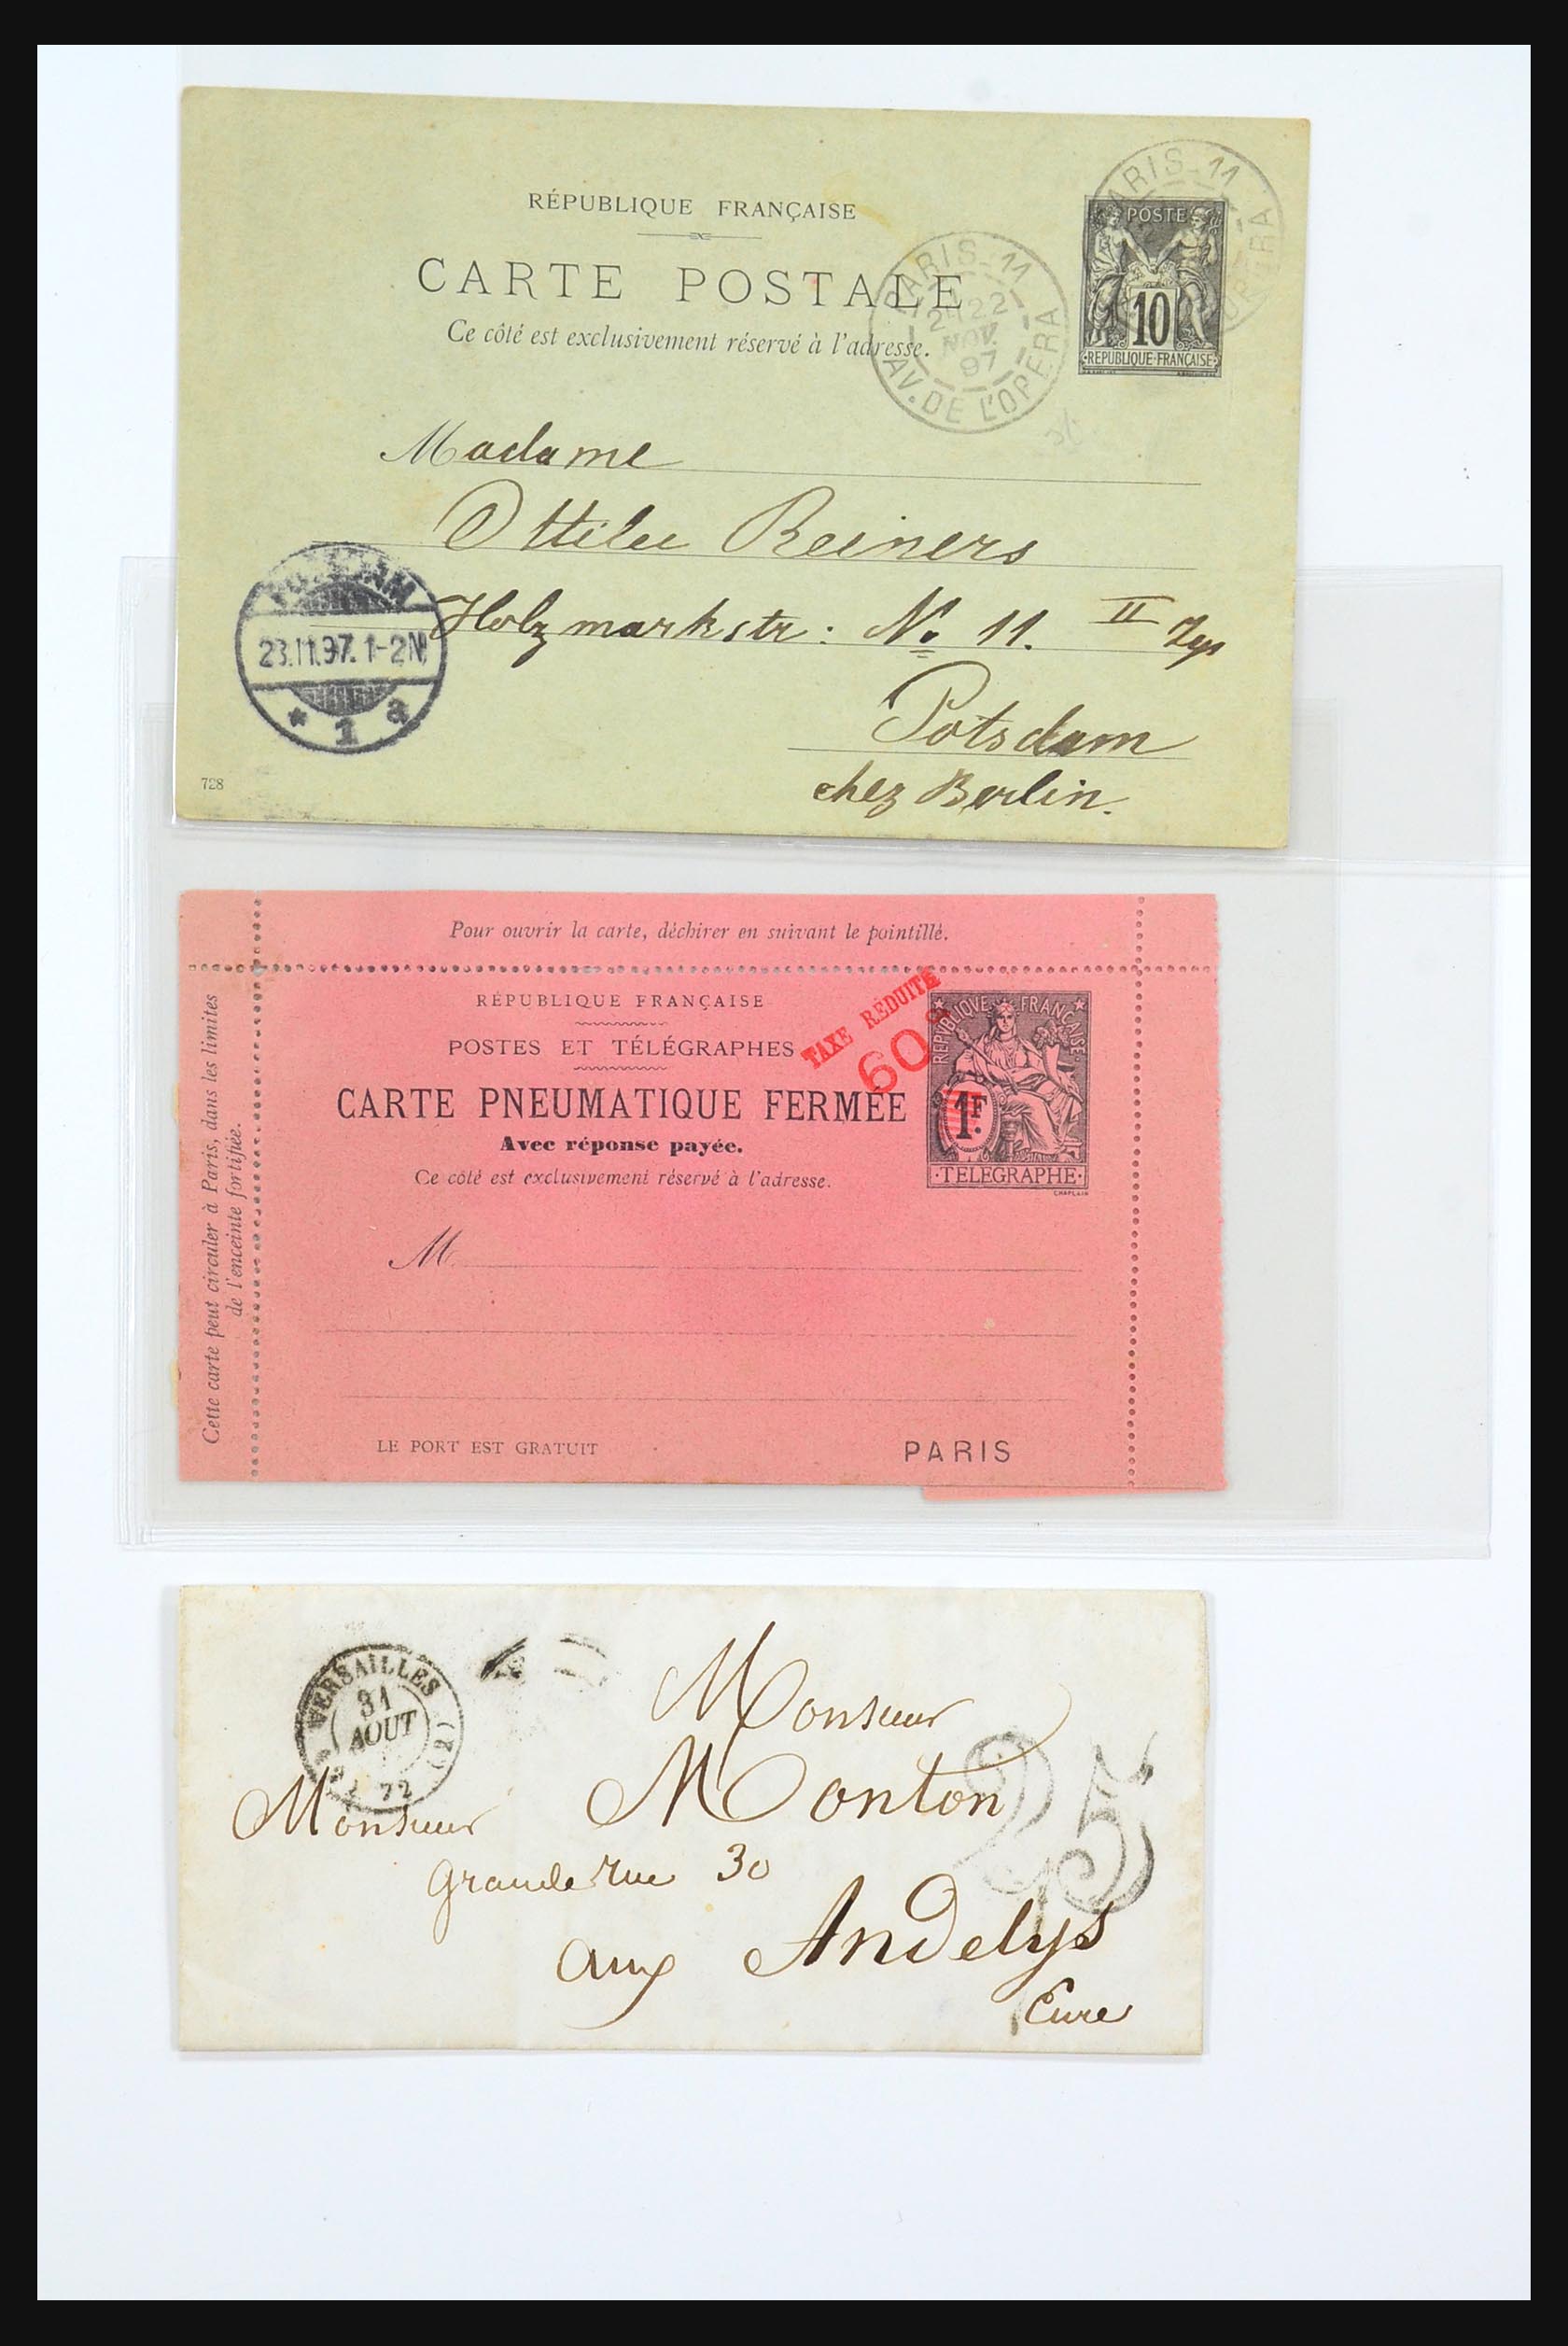 RÉPUBLIQUE FRANÇAISE
CARTE POSTALE
Ce côté est exclusivement réservé à l'adresse.
PARIS-11
22
NOV.
97
AV. DE L'OPERA
PARIS-11
POSTE
10
REPUBLIQUE FRANÇAISE
Madame
Ottilie Reiners
Holzmarkstr: No 11. II
Potsdam
chez Berlin.
23.11.97. 1-2N
* 1 a
728
Pour ouvrir la carte, déchirer en suivant le pointillé.
Cette carte peut circuler à Paris, dans les limites
de l'enceinte fortifiée.
RÉPUBLIQUE FRANÇAISE
POSTES ET TÉLÉGRAPHES
CARTE PNEUMATIQUE FERMÉE
Avec réponse payée.
Ce côté est exclusivement réservé à l'adresse.
TAXE RÉDUITE
60c
REPUBLIQUE FRANÇAISE
1F.
TELEGRAPHE
CHAPLAIN
M
LE PORT EST GRATUIT
PARIS
VERSAILLES
31
AOUT
(72)
Monsieur
Monton
Monsieur
grande rue 30
aux Andelys
Eure
25